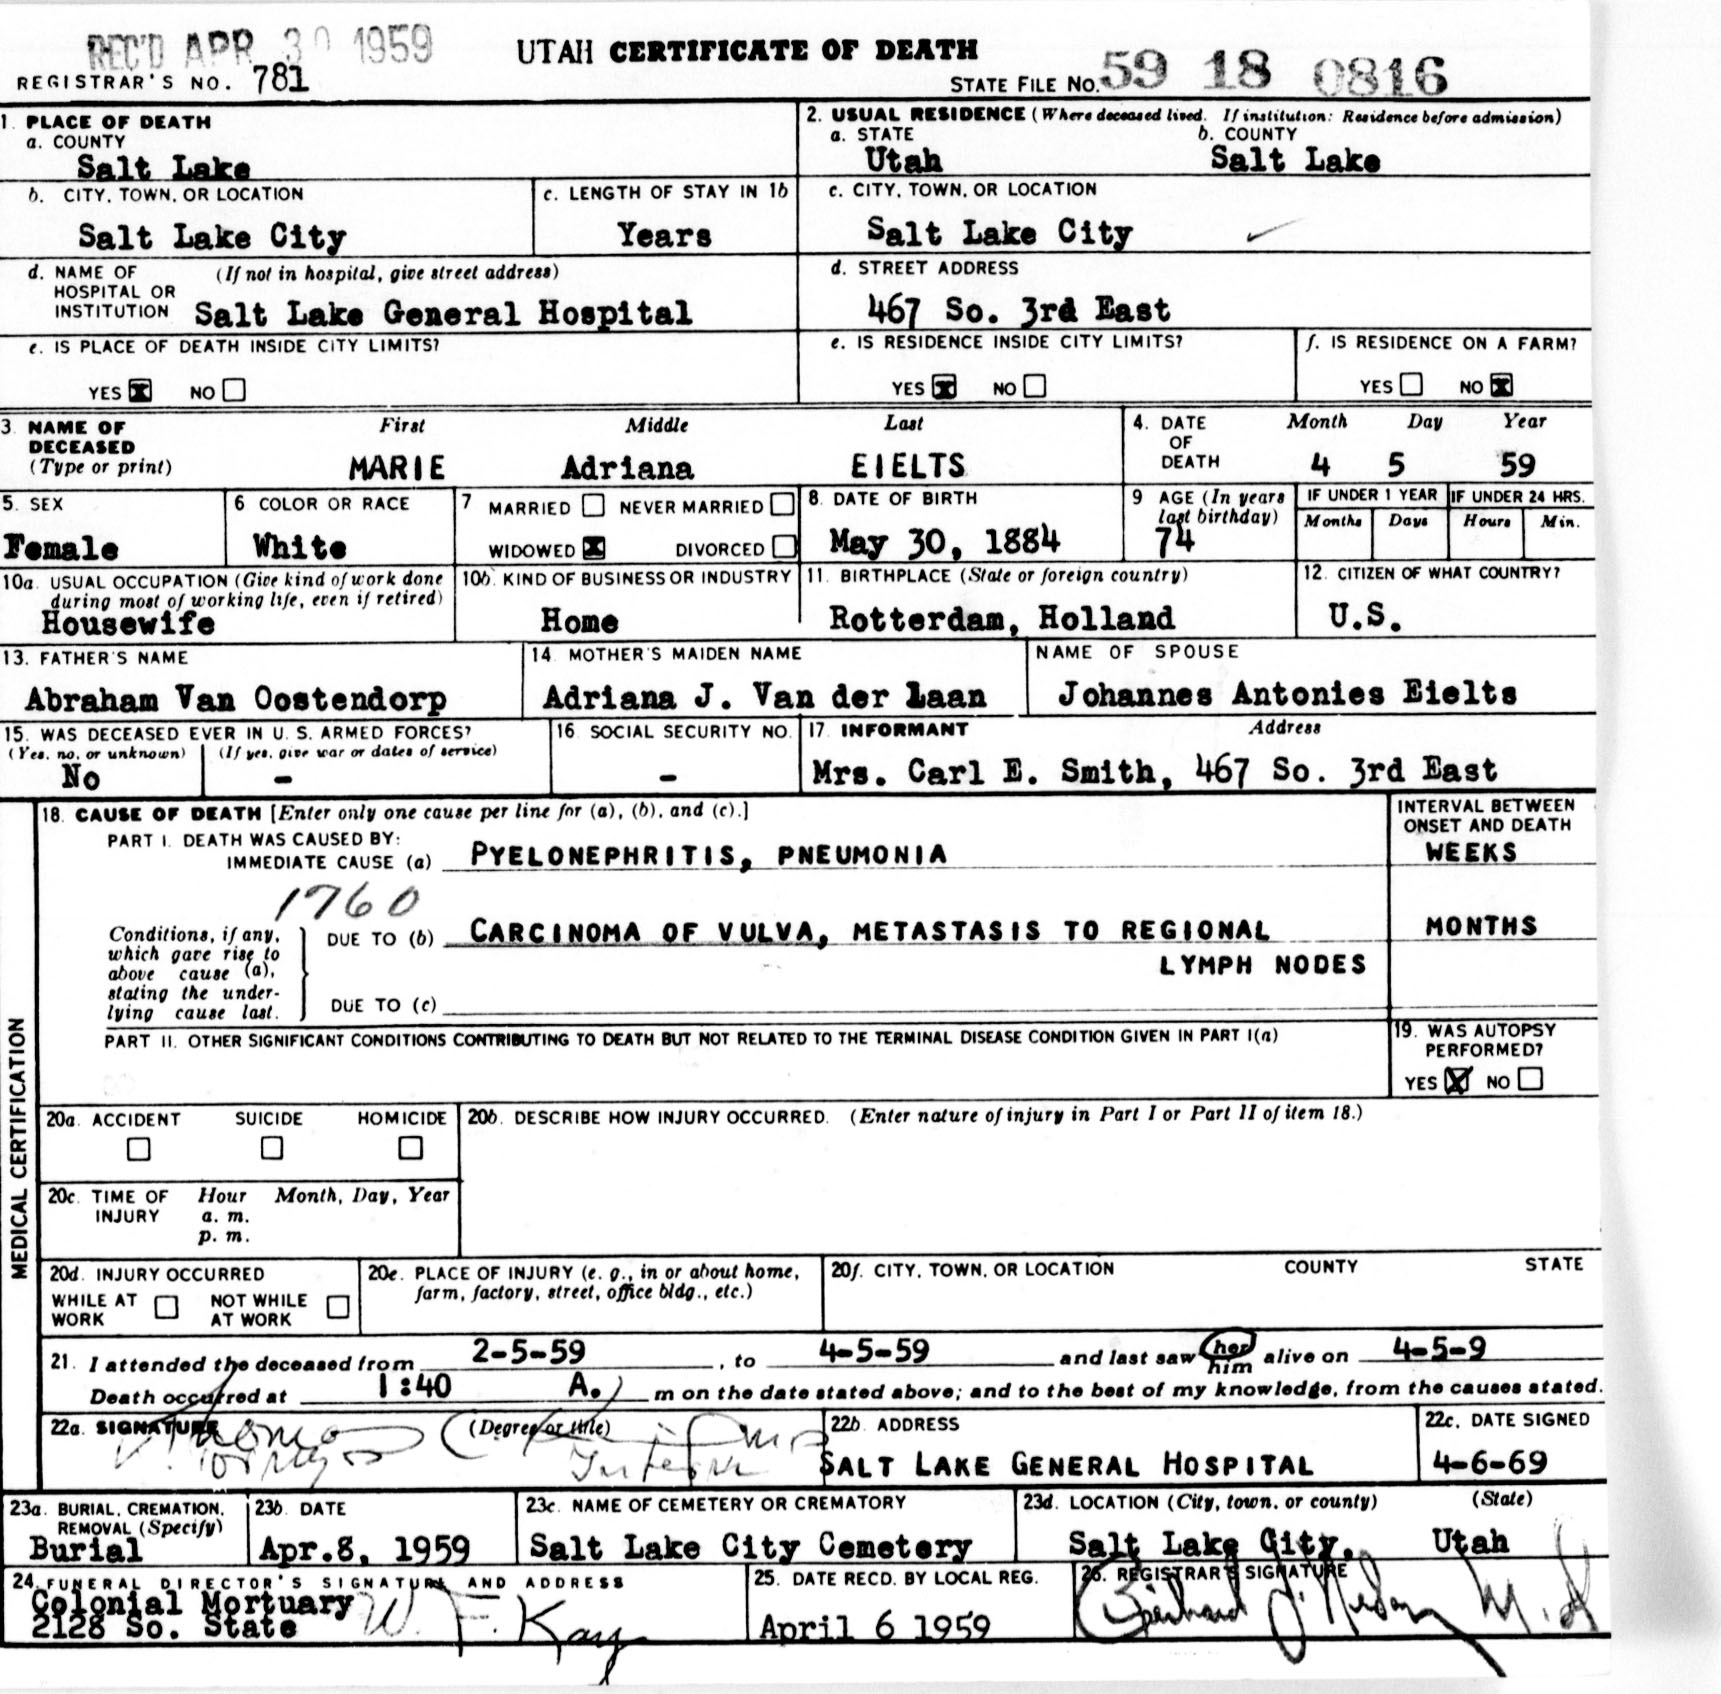 REC'D APR 30 1959
UTAH CERTIFICATE OF DEATH
REGISTRAR'S NO. 781
STATE FILE NO. 59 18 0816
1. PLACE OF DEATH
a. COUNTY
Salt Lake
2. USUAL RESIDENCE (Where deceased lived. If institution: Residence before admission)
a. STATE b. COUNTY
Utah Salt Lake
b. CITY, TOWN, OR LOCATION
Salt Lake City
c. LENGTH OF STAY IN 1b
Years
c. CITY, TOWN, OR LOCATION
Salt Lake City
d. NAME OF HOSPITAL OR INSTITUTION (If not in hospital, give street address)
Salt Lake General Hospital
d. STREET ADDRESS
467 So. 3rd East
e. IS PLACE OF DEATH INSIDE CITY LIMITS?
YES X NO
e. IS RESIDENCE INSIDE CITY LIMITS?
YES X NO
f. IS RESIDENCE ON A FARM?
YES NO X
3. NAME OF DECEASED (Type or print)
First Middle Last
MARIE Adriana EIELTS
4. DATE OF DEATH
Month Day Year
4 5 59
5. SEX
Female
6 COLOR OR RACE
White
7 MARRIED NEVER MARRIED
WIDOWED X DIVORCED
8. DATE OF BIRTH
May 30, 1884
9 AGE (In years last birthday)
74
IF UNDER 1 YEAR
Months Days
IF UNDER 24 HRS.
Hours Min.
10a. USUAL OCCUPATION (Give kind of work done during most of working life, even if retired)
Housewife
10b. KIND OF BUSINESS OR INDUSTRY
Home
11. BIRTHPLACE (State or foreign country)
Rotterdam, Holland
12. CITIZEN OF WHAT COUNTRY?
U.S.
13. FATHER'S NAME
Abraham Van Oostendorp
14. MOTHER'S MAIDEN NAME
Adriana J. Van der Laan
NAME OF SPOUSE
Johannes Antonies Eielts
15. WAS DECEASED EVER IN U. S. ARMED FORCES?
(Yes, no, or unknown) (If yes, give war or dates of service)
No -
16. SOCIAL SECURITY NO.
-
17. INFORMANT Address
Mrs. Carl E. Smith, 467 So. 3rd East
MEDICAL CERTIFICATION
18. CAUSE OF DEATH [Enter only one cause per line for (a), (b), and (c).]
INTERVAL BETWEEN ONSET AND DEATH
PART I. DEATH WAS CAUSED BY:
IMMEDIATE CAUSE (a) PYELONEPHRITIS, PNEUMONIA WEEKS
1760
Conditions, if any, which gave rise to above cause (a), stating the underlying cause last.
DUE TO (b) CARCINOMA OF VULVA, METASTASIS TO REGIONAL MONTHS
LYMPH NODES
DUE TO (c)
PART II. OTHER SIGNIFICANT CONDITIONS CONTRIBUTING TO DEATH BUT NOT RELATED TO THE TERMINAL DISEASE CONDITION GIVEN IN PART I(a)
19. WAS AUTOPSY PERFORMED?
YES X NO
20a. ACCIDENT SUICIDE HOMICIDE
20b. DESCRIBE HOW INJURY OCCURRED. (Enter nature of injury in Part I or Part II of item 18.)
20c. TIME OF INJURY Hour Month, Day, Year
a. m.
p. m.
20d. INJURY OCCURRED
WHILE AT WORK NOT WHILE AT WORK
20e. PLACE OF INJURY (e. g., in or about home, farm, factory, street, office bldg., etc.)
20f. CITY, TOWN, OR LOCATION COUNTY STATE
21. I attended the deceased from 2-5-59, to 4-5-59 and last saw her him alive on 4-5-9
Death occurred at 1:40 A. m on the date stated above; and to the best of my knowledge, from the causes stated.
22a. SIGNATURE (Degree or title)
Intern
22b. ADDRESS
SALT LAKE GENERAL HOSPITAL
22c. DATE SIGNED
4-6-69
23a. BURIAL, CREMATION, REMOVAL (Specify)
Burial
23b. DATE
Apr.8, 1959
23c. NAME OF CEMETERY OR CREMATORY
Salt Lake City Cemetery
23d. LOCATION (City, town, or county) (State)
Salt Lake City, Utah
24. FUNERAL DIRECTOR'S SIGNATURE AND ADDRESS
Colonial Mortuary W. F. Kay
2128 So. State
25. DATE RECD. BY LOCAL REG.
April 6 1959
26. REGISTRAR'S SIGNATURE